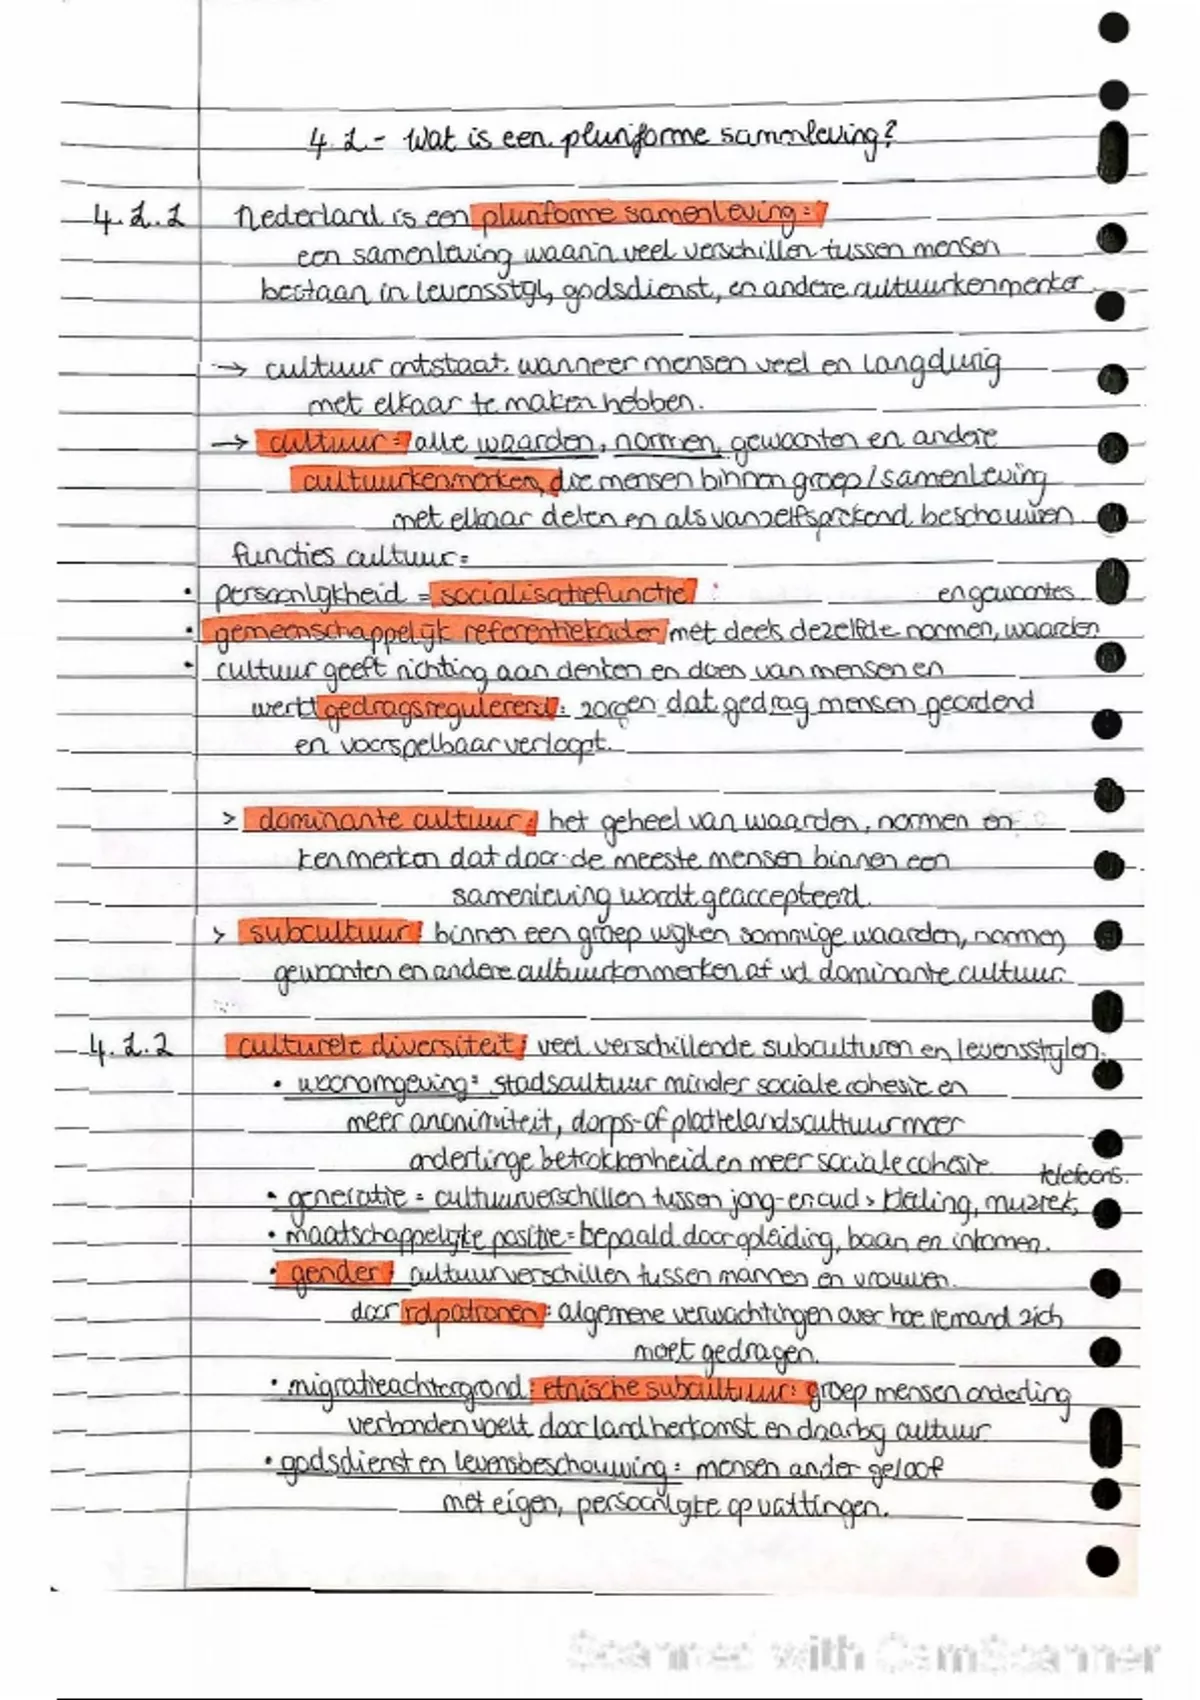 4.1 - Wat is een pluriforme sammleving?
4.1.1 Nederland is een pluriforme samenleving:
een samenleving waarin veel verschillen tussen mensen
bestaan in levensstijl, godsdienst, en andere cultuurkenmerken.
→ cultuur ontstaat wanneer mensen veel en langdurig
met elkaar te maken hebben.
→ cultuur: alle waarden, normen, gewoonten en andere
cultuurkenmerken, die mensen binnen groep/samenleving
met elkaar delen en als vanzelfsprekend beschouwen.
functies cultuur:
• persoonlijkheid = socialisatiefunctie
en gewoontes.
• gemeenschappelijk referentiekader met deels dezelfde normen, waarden
• cultuur geeft richting aan denken en doen van mensen en
werkt gedragsregulerend: zorgen dat gedrag mensen geordend
en voorspelbaar verloopt.
> dominante cultuur: het geheel van waarden, normen en
kenmerken dat door de meeste mensen binnen een
samenleving wordt geaccepteerd.
> subcultuur: binnen een groep wijken sommige waarden, normen,
gewoonten en andere cultuurkenmerken af vd dominante cultuur.
4.1.2 culturele diversiteit: veel verschillende subculturen en levensstijlen.
• woonomgeving: stadscultuur minder sociale cohesie en
meer anonimiteit, dorps- of plattelandscultuur meer
onderlinge betrokkenheid en meer sociale cohesie.
telefoons.
• generatie = cultuurverschillen tussen jong- en oud > kleding, muziek,
• maatschappelijke positie = bepaald door opleiding, baan en inkomen.
• gender: cultuurverschillen tussen mannen en vrouwen.
door rolpatronen: algemene verwachtingen over hoe iemand zich
moet gedragen.
• migratieachtergrond: etnische subcultuur: groep mensen onderling
verbonden voelt door land herkomst en daarbij cultuur
• godsdienst en levensbeschouwing: mensen ander geloof
met eigen, persoonlijke opvattingen.
Scanned with CamScanner